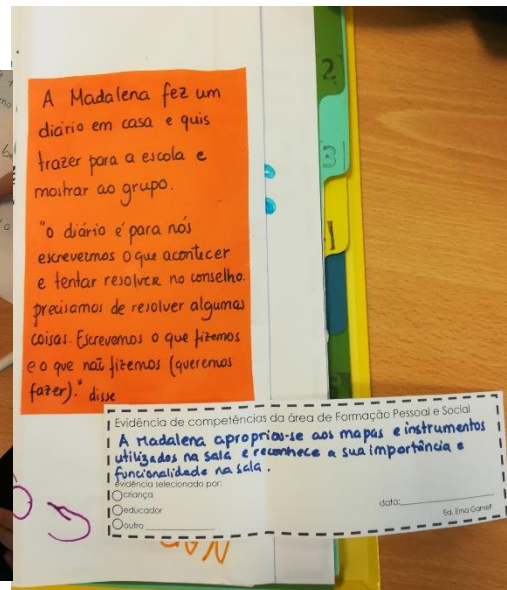 A Madalena fez um
diário em casa e quis
trazer para a escola e
mostrar ao grupo.
"o diário é para nós
escrevermos o que acontecer
e tentar resolver no conselho.
precisamos de resolver algumas
coisas. Escrevemos o que fizemos
e o que não fizemos (queremos
fazer)." disse
Evidência de competências da área de Formação Pessoal e Social
A Madalena apropriou-se aos mapas e instrumentos
utilizados na sala e reconhece a sua importância e
funcionalidade na sala.
evidência selecionado por:
criança
educador
outro
data:
Ed. Ema Gamelf
2
3